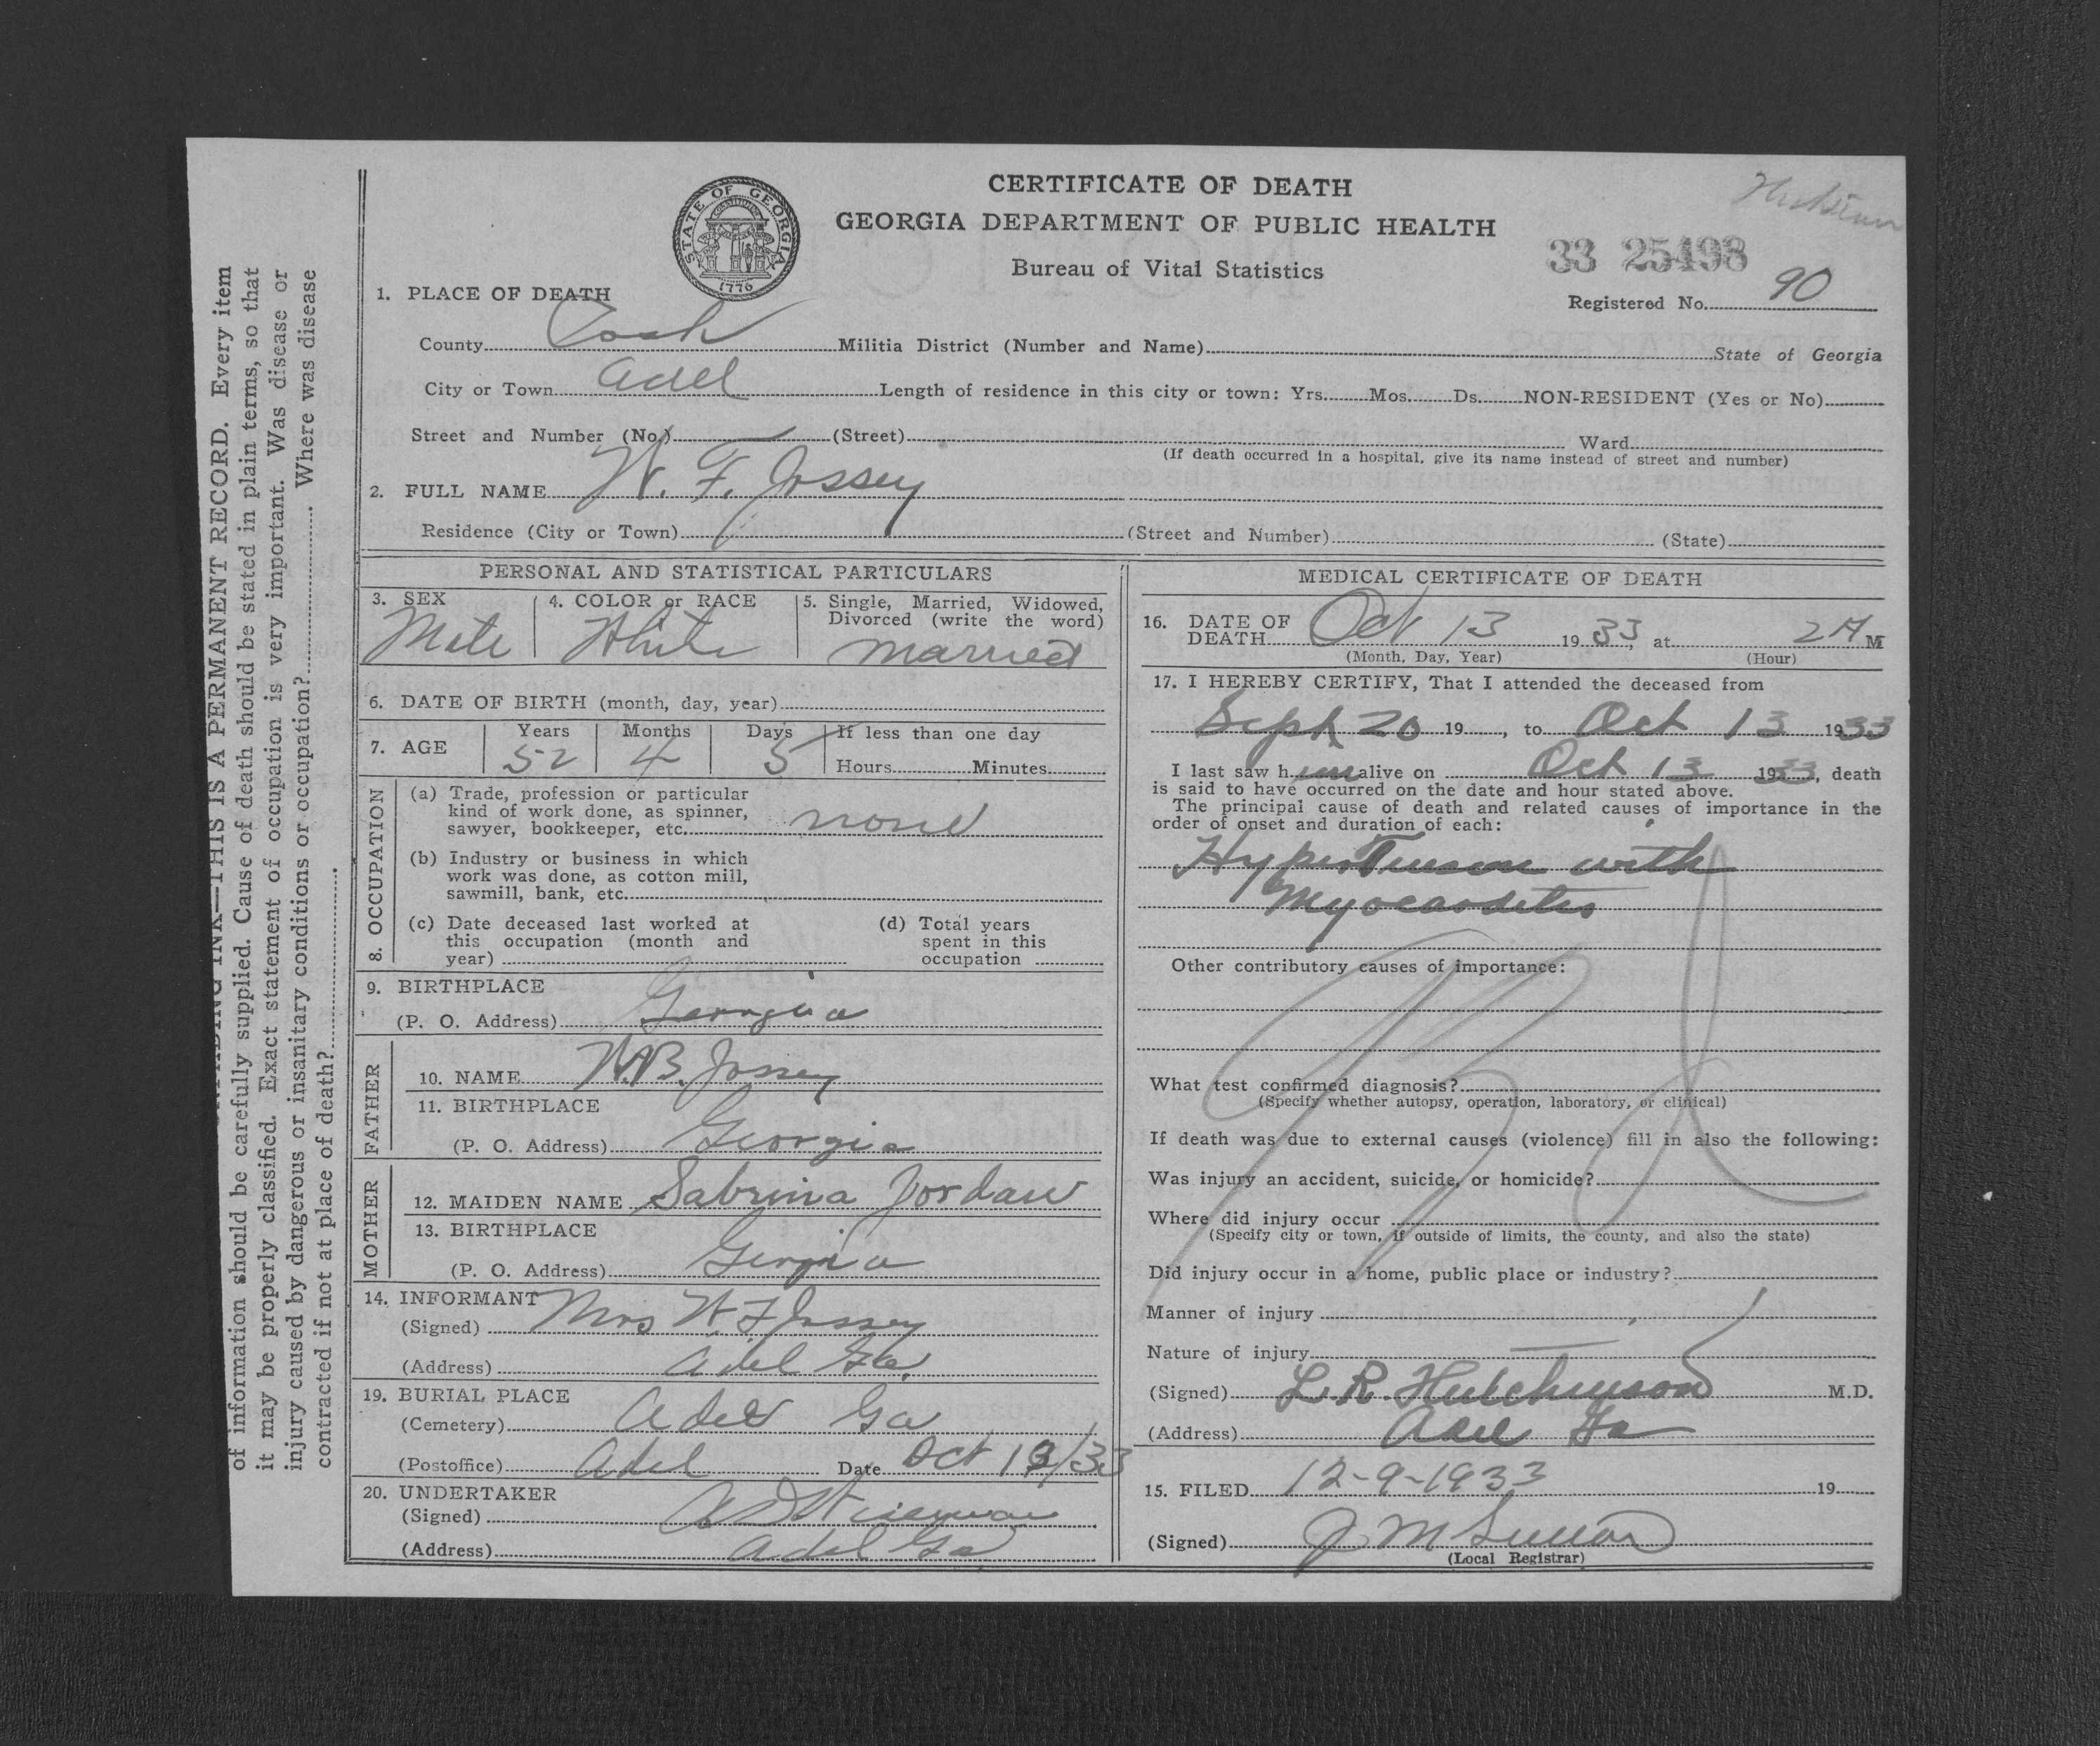 CERTIFICATE OF DEATH
GEORGIA DEPARTMENT OF PUBLIC HEALTH
Bureau of Vital Statistics
STATE OF GEORGIA
CONSTITUTION
1776
33 25498
Registered No. 90
1. PLACE OF DEATH
County Cook Militia District (Number and Name) State of Georgia
City or Town Adel Length of residence in this city or town: Yrs. Mos. Ds. NON-RESIDENT (Yes or No)
Street and Number (No.) (Street) Ward
(If death occurred in a hospital, give its name instead of street and number)
2. FULL NAME W. F. Jossey
Residence (City or Town) (Street and Number) (State)
PERSONAL AND STATISTICAL PARTICULARS
3. SEX 4. COLOR or RACE 5. Single, Married, Widowed,
Divorced (write the word)
Male White Married
6. DATE OF BIRTH (month, day, year)
7. AGE Years Months Days If less than one day
52 4 5 Hours Minutes
8. OCCUPATION
(a) Trade, profession or particular
kind of work done, as spinner,
sawyer, bookkeeper, etc. none
(b) Industry or business in which
work was done, as cotton mill,
sawmill, bank, etc.
(c) Date deceased last worked at
this occupation (month and
year)
(d) Total years
spent in this
occupation
9. BIRTHPLACE
(P. O. Address) Georgia
FATHER
10. NAME W.B. Jossey
11. BIRTHPLACE
(P. O. Address) Georgia
MOTHER
12. MAIDEN NAME Sabrina Jordan
13. BIRTHPLACE
(P. O. Address) Georgia
14. INFORMANT
(Signed) Mrs W. F Jossey
(Address) Adel Ga.
19. BURIAL PLACE
(Cemetery) Adel Ga
(Postoffice) Adel Date Oct 13/33
20. UNDERTAKER
(Signed)
(Address) Adel Ga
MEDICAL CERTIFICATE OF DEATH
16. DATE OF
DEATH Oct 13 1933, at 2 A M
(Month, Day, Year) (Hour)
17. I HEREBY CERTIFY, That I attended the deceased from
Sept 20 19, to Oct 13 1933
I last saw him alive on Oct 13 1933, death
is said to have occurred on the date and hour stated above.
The principal cause of death and related causes of importance in the
order of onset and duration of each:
Hypertension with
Myocarditis
Other contributory causes of importance:
What test confirmed diagnosis?
(Specify whether autopsy, operation, laboratory, or clinical)
If death was due to external causes (violence) fill in also the following:
Was injury an accident, suicide, or homicide?
Where did injury occur
(Specify city or town, if outside of limits, the county, and also the state)
Did injury occur in a home, public place or industry?
Manner of injury
Nature of injury
(Signed) L. R. Hutchinson M.D.
(Address) Adel Ga
15. FILED 12-9-1933 19
(Signed) J M
(Local Registrar)
INK—THIS IS A PERMANENT RECORD. Every item
of information should be carefully supplied. Cause of death should be stated in plain terms, so that
it may be properly classified. Exact statement of occupation is very important. Was disease or
injury caused by dangerous or insanitary conditions or occupation? Where was disease
contracted if not at place of death?